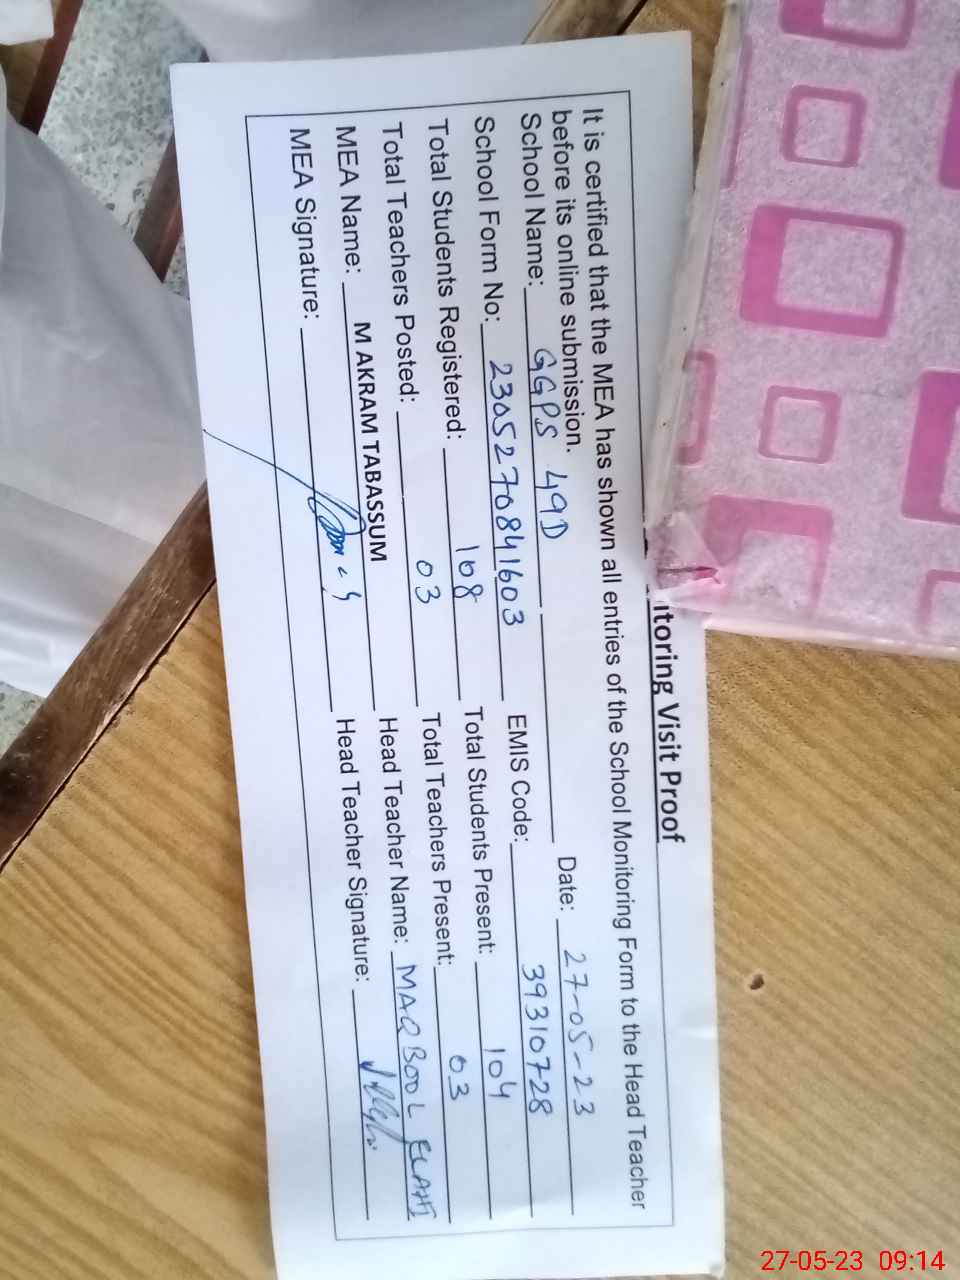 itoring Visit Proof
It is certified that the MEA has shown all entries of the School Monitoring Form to the Head Teacher
before its online submission.
School Name: GGPS 49D Date: 27-05-23
School Form No: 2305270841603 EMIS Code: 39310728
Total Students Registered: 108 Total Students Present: 104
Total Teachers Posted: 03 Total Teachers Present: 03
MEA Name: M AKRAM TABASSUM Head Teacher Name: MAQBOOL ELAHI
MEA Signature: Head Teacher Signature:
27-05-23 09:14